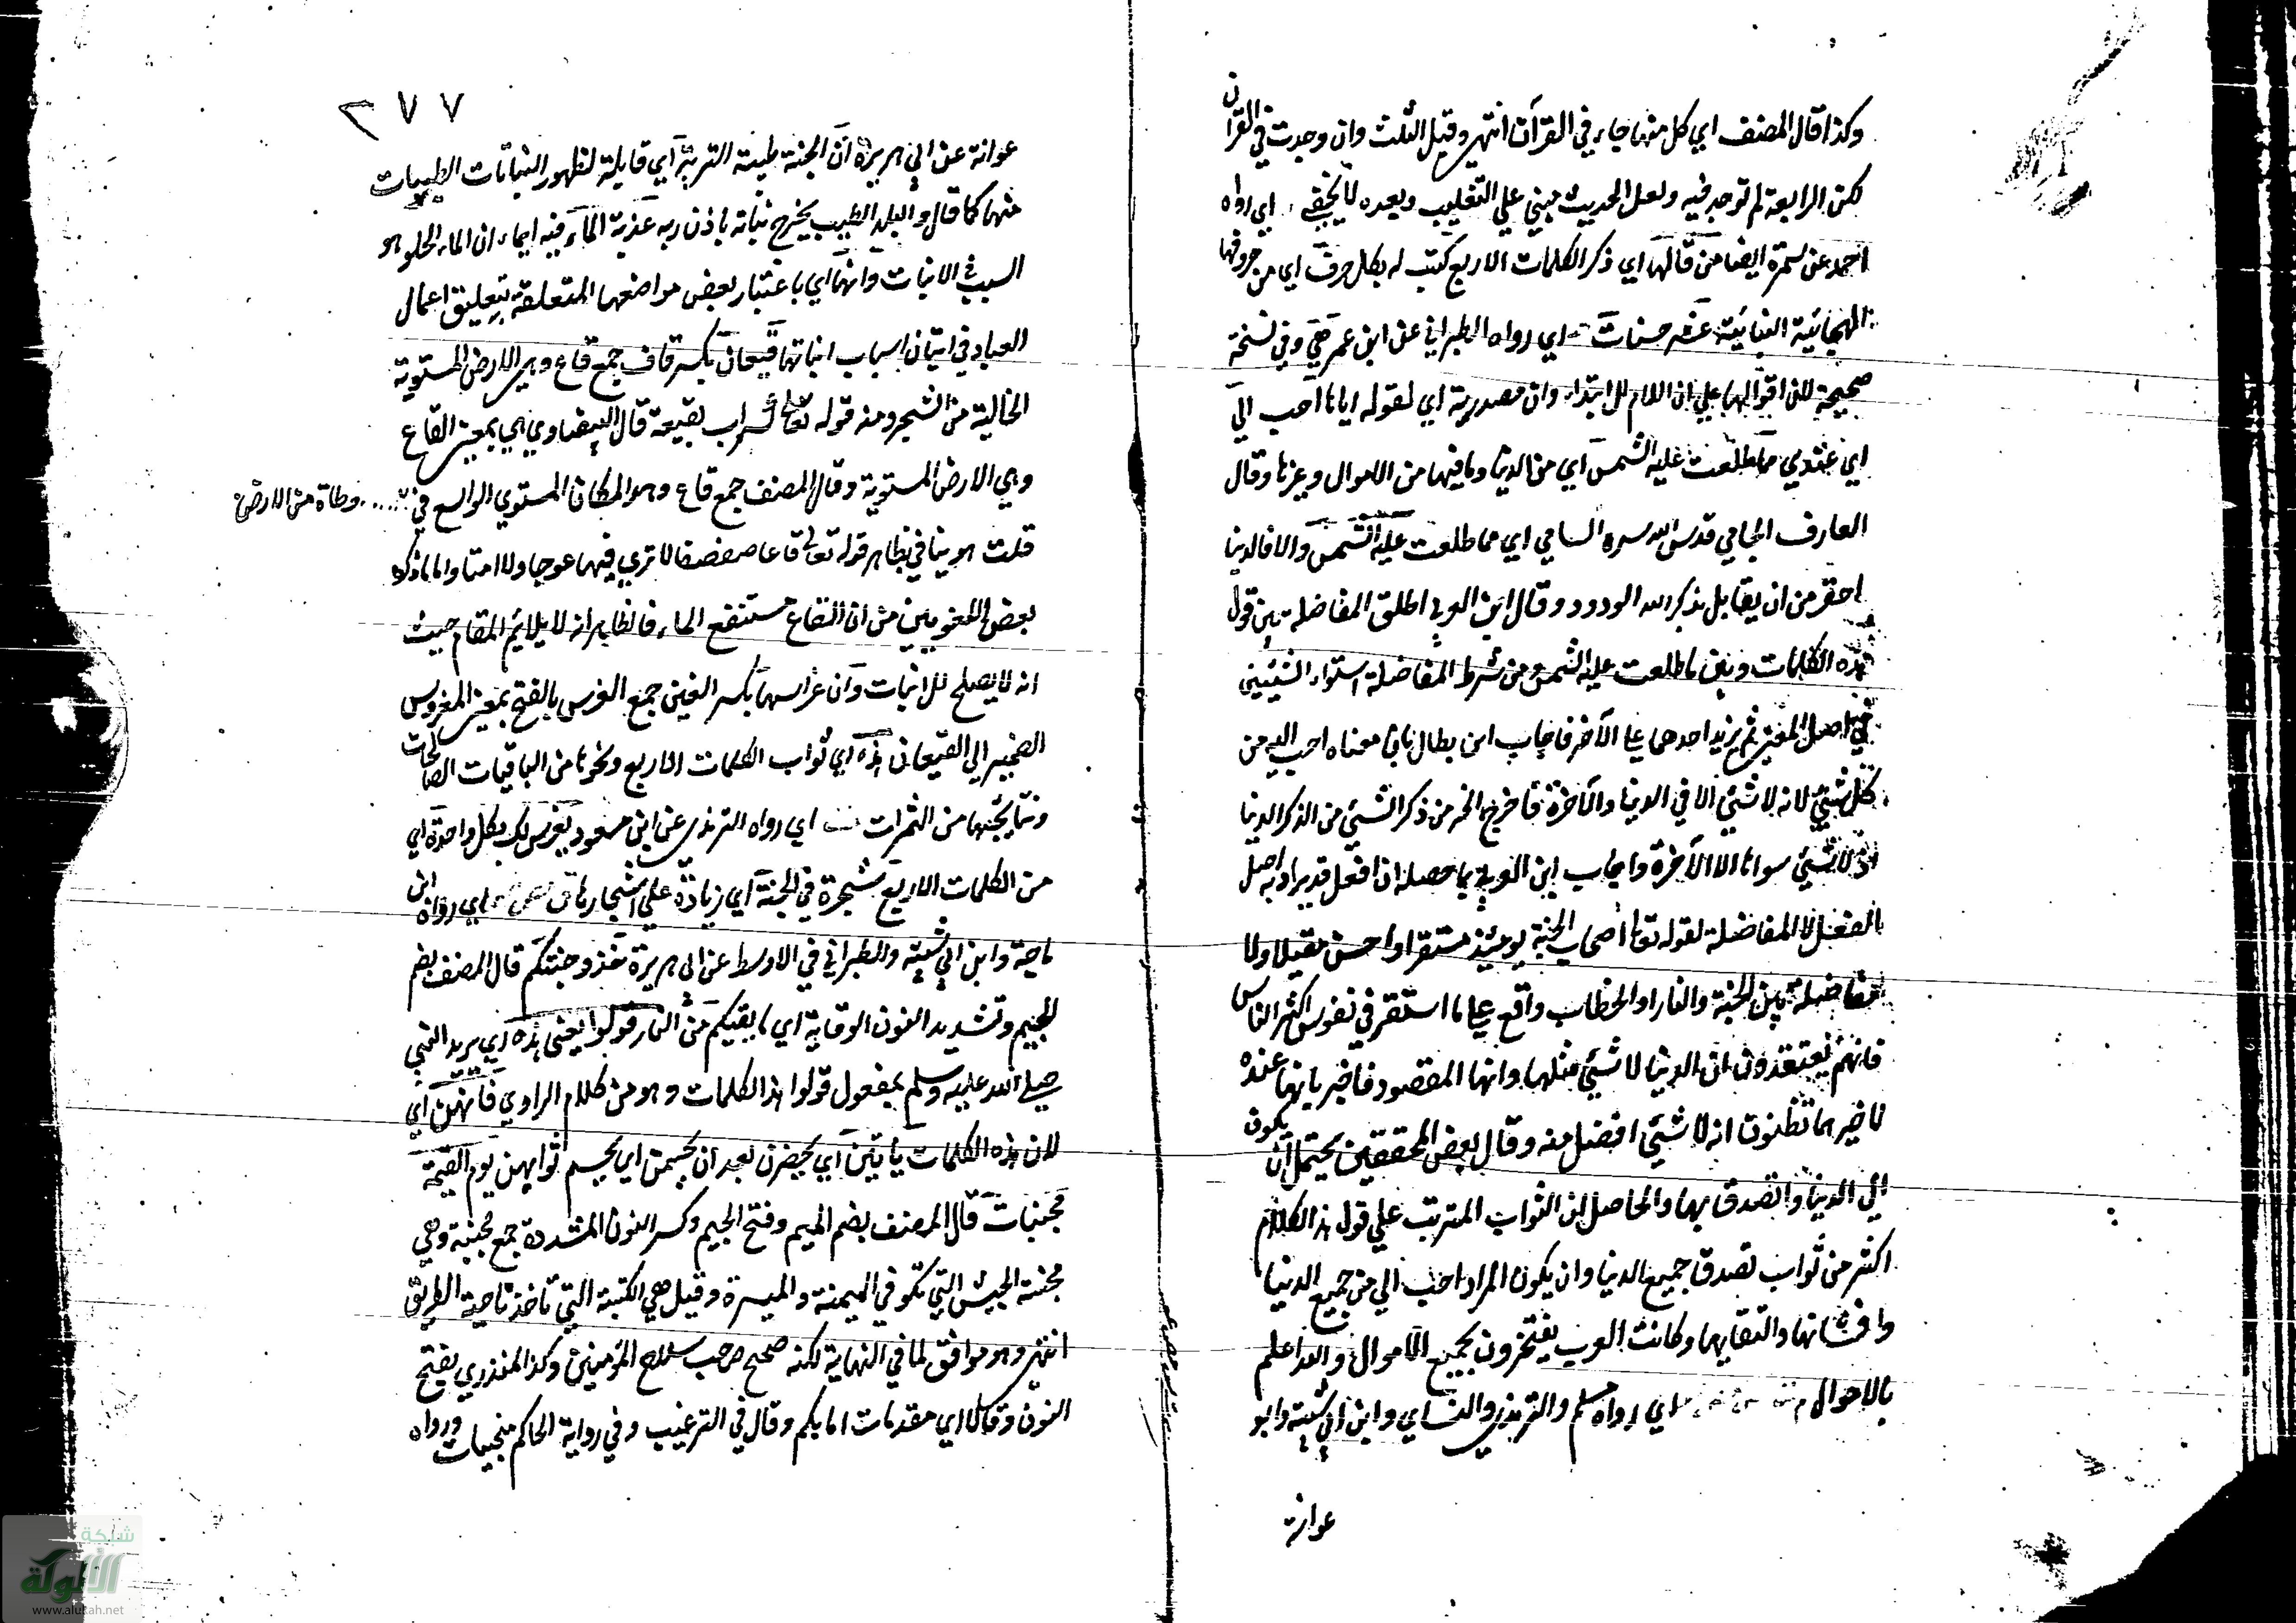 وكذا قال المصنف اي كل منها جاء في القرآن انتهى وقيل الثلث وان وجدت في القرآن
لكن الرابعة لم توجد فيه ولعل الحديث مبني علي التغليب وبعده لا يخفي اي رواه
احمد عن سمرة ايضا من قالها اي ذكر الكلمات الاربع كتب له بكل حرف اي من حروفها
الهجائية البنائية عشر حسنات اي رواه الطبراني عن ابن عمر وفي نسخة
صحيحة لان اقولها علي ان اللام للابتداء وان مصدرية اي لقوله اياها احب الي
اي عندي مما طلعت عليه الشمس اي من الدنيا وما فيها من الاموال وغيرها وقال
العارف الجامي قدس الله سره السامي اي مما طلعت عليه الشمس والا فالدنيا
احقر من ان يقابل بذكر الله الودود وقال ابن العربي اطلق المفاضلة بين قول
هذه الكلمات وبين ما طلعت عليه الشمس ومن شرط المفاضلة استواء الشيئين
في اصل المعنى ثم يزيد احدهما علي الآخر فاجاب ابن بطال بان معناه احب اليه من
كل شيئ لانه لا شيئ الا في الدنيا والآخرة فاخرج الخبر من ذكر الشيئ من الذكر الدنيا
اذ لا شيئ سواها الا الآخرة واجاب ابن العربي بما حصله ان افعل قد يراد به اصل
الفعل لا المفاضلة لقوله تعالى اصحاب الجنة يومئذ خير مستقرا واحسن مقيلا ولا
مفاضلة بين الجنة والنار او الخطاب واقع علي ما استقر في نفوس اكثر الناس
فانهم يعتقدون ان الدنيا لا شيئ مثلها وانها المقصود فاخبر بانها عنده
لا خير مما تظنون انه لا شيئ افضل منه وقال بعض المحققين يحتمل ان يكون
الي الدنيا واتصدق بها والحاصل ان الثواب المترتب علي قول هذا الكلام
اكثر من ثواب تصدق جميع الدنيا وان يكون المراد احب الي من جميع الدنيا
وكانت العرب يفتخرون بجميع الاموال والله اعلم
بالاحوال اي رواه مسلم والترمذي والنسائي وابن ابي شيبة وابو
عوانة
٢٧٧
عوانة عن ابي هريرة ان الجنة طيبة التربة اي قابلة لظهور النباتات الطيبات
منها كما قال والبلد الطيب يخرج نباته باذن ربه عذبة الماء فيه ايماء ان الماء الحلو هو
السبب في الانبات وانها اي باعتبار بعض مواضعها المتعلقة بتعليق اعمال
العباد في اتيان اسباب انباتها قيعان بكسر قاف جمع قاع وهي الارض المستوية
الخالية من الشجر ومنه قوله تعالى كسراب بقيعة قال البيضاوي هي بمعنى القاع
وهي الارض المستوية وقال المصنف جمع قاع وهو المكان المستوي الواسع في وطاة من الارض
قلت هو ينافي بظاهر قوله تعالى قاعا صفصفا لا تري فيها عوجا ولا امتا واما ما ذكره
بعض اللغويين من ان القاع مستنقع الماء فالظاهر انه لا يلائم المقام حيث
انه لا يصلح للانبات وان غراسها بكسر الغين جمع الغرس بالفتح بمعنى المغروس
الضمير الي القيعان هذه اي ثواب الكلمات الاربع ونحوها من الباقيات الصالحات
ونتايجها من الثمرات اي رواه الترمذي عن ابن مسعود يغرس لك بكل واحدة اي
من الكلمات الاربع شجرة في الجنة اي زيادة علي اشجارها اي رواه ابن
ماجة وابن ابي شيبة والطبراني في الاوسط عن ابي هريرة خذوا جنتكم قال المصنف بضم
الجيم وتشديد النون الوقاية اي ما يقيكم من النار قولوا يعني هذه اي يريد النبي
صلي الله عليه وسلم بمفعول قولوا هذا الكلمات وهو من كلام الراوي فانهن اي
لان هذه الكلمات ياتين اي يحضرن بعد ان يجسمن اي يجسم ثوابهن يوم القيمة
مجنبات قال المصنف بضم الميم وفتح الجيم وكسر النون المشددة جمع مجنبة وهي
مجنبة الجيش التي تكو في الميمنة والميسرة وقيل هي الكتيبة التي تاخذ ناحية الطريق
انتهى وهو موافق لما في النهاية لكنه صحح صاحب سلاح المؤمنين وكذا المنذري بفتح
النون وقالا اي مقدمات امامكم وقال في الترغيب وفي رواية الحاكم منجيات ورواه
شبكة
الألوكة
www.alukah.net